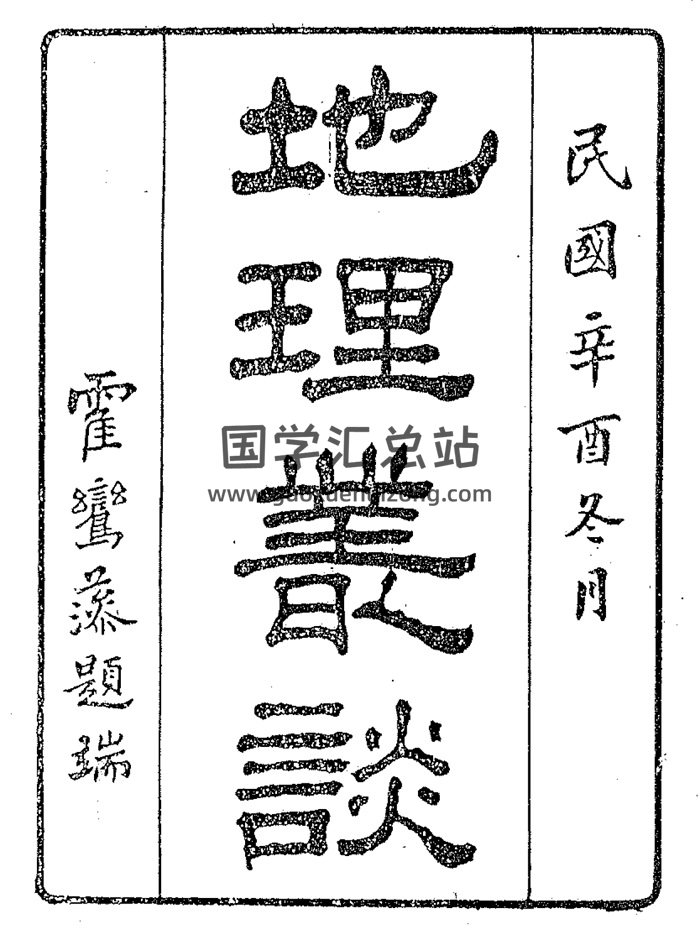 民國辛酉冬月
地理叢談
霍鸞藻題端
国学汇总站
www.guoxuehuizong.com